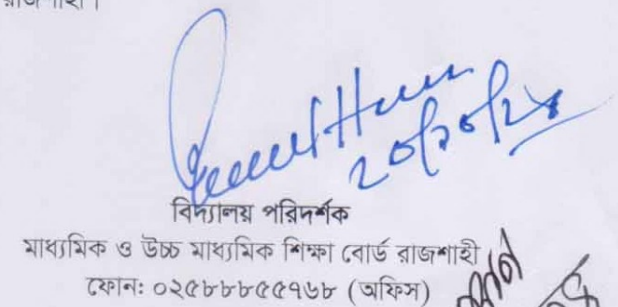 রাজশাহী।
২০/১০/২৪
বিদ্যালয় পরিদর্শক
মাধ্যমিক ও উচ্চ মাধ্যমিক শিক্ষা বোর্ড রাজশাহী
ফোন: ০২৫৮৮৮৫৫৭৬৮ (অফিস)